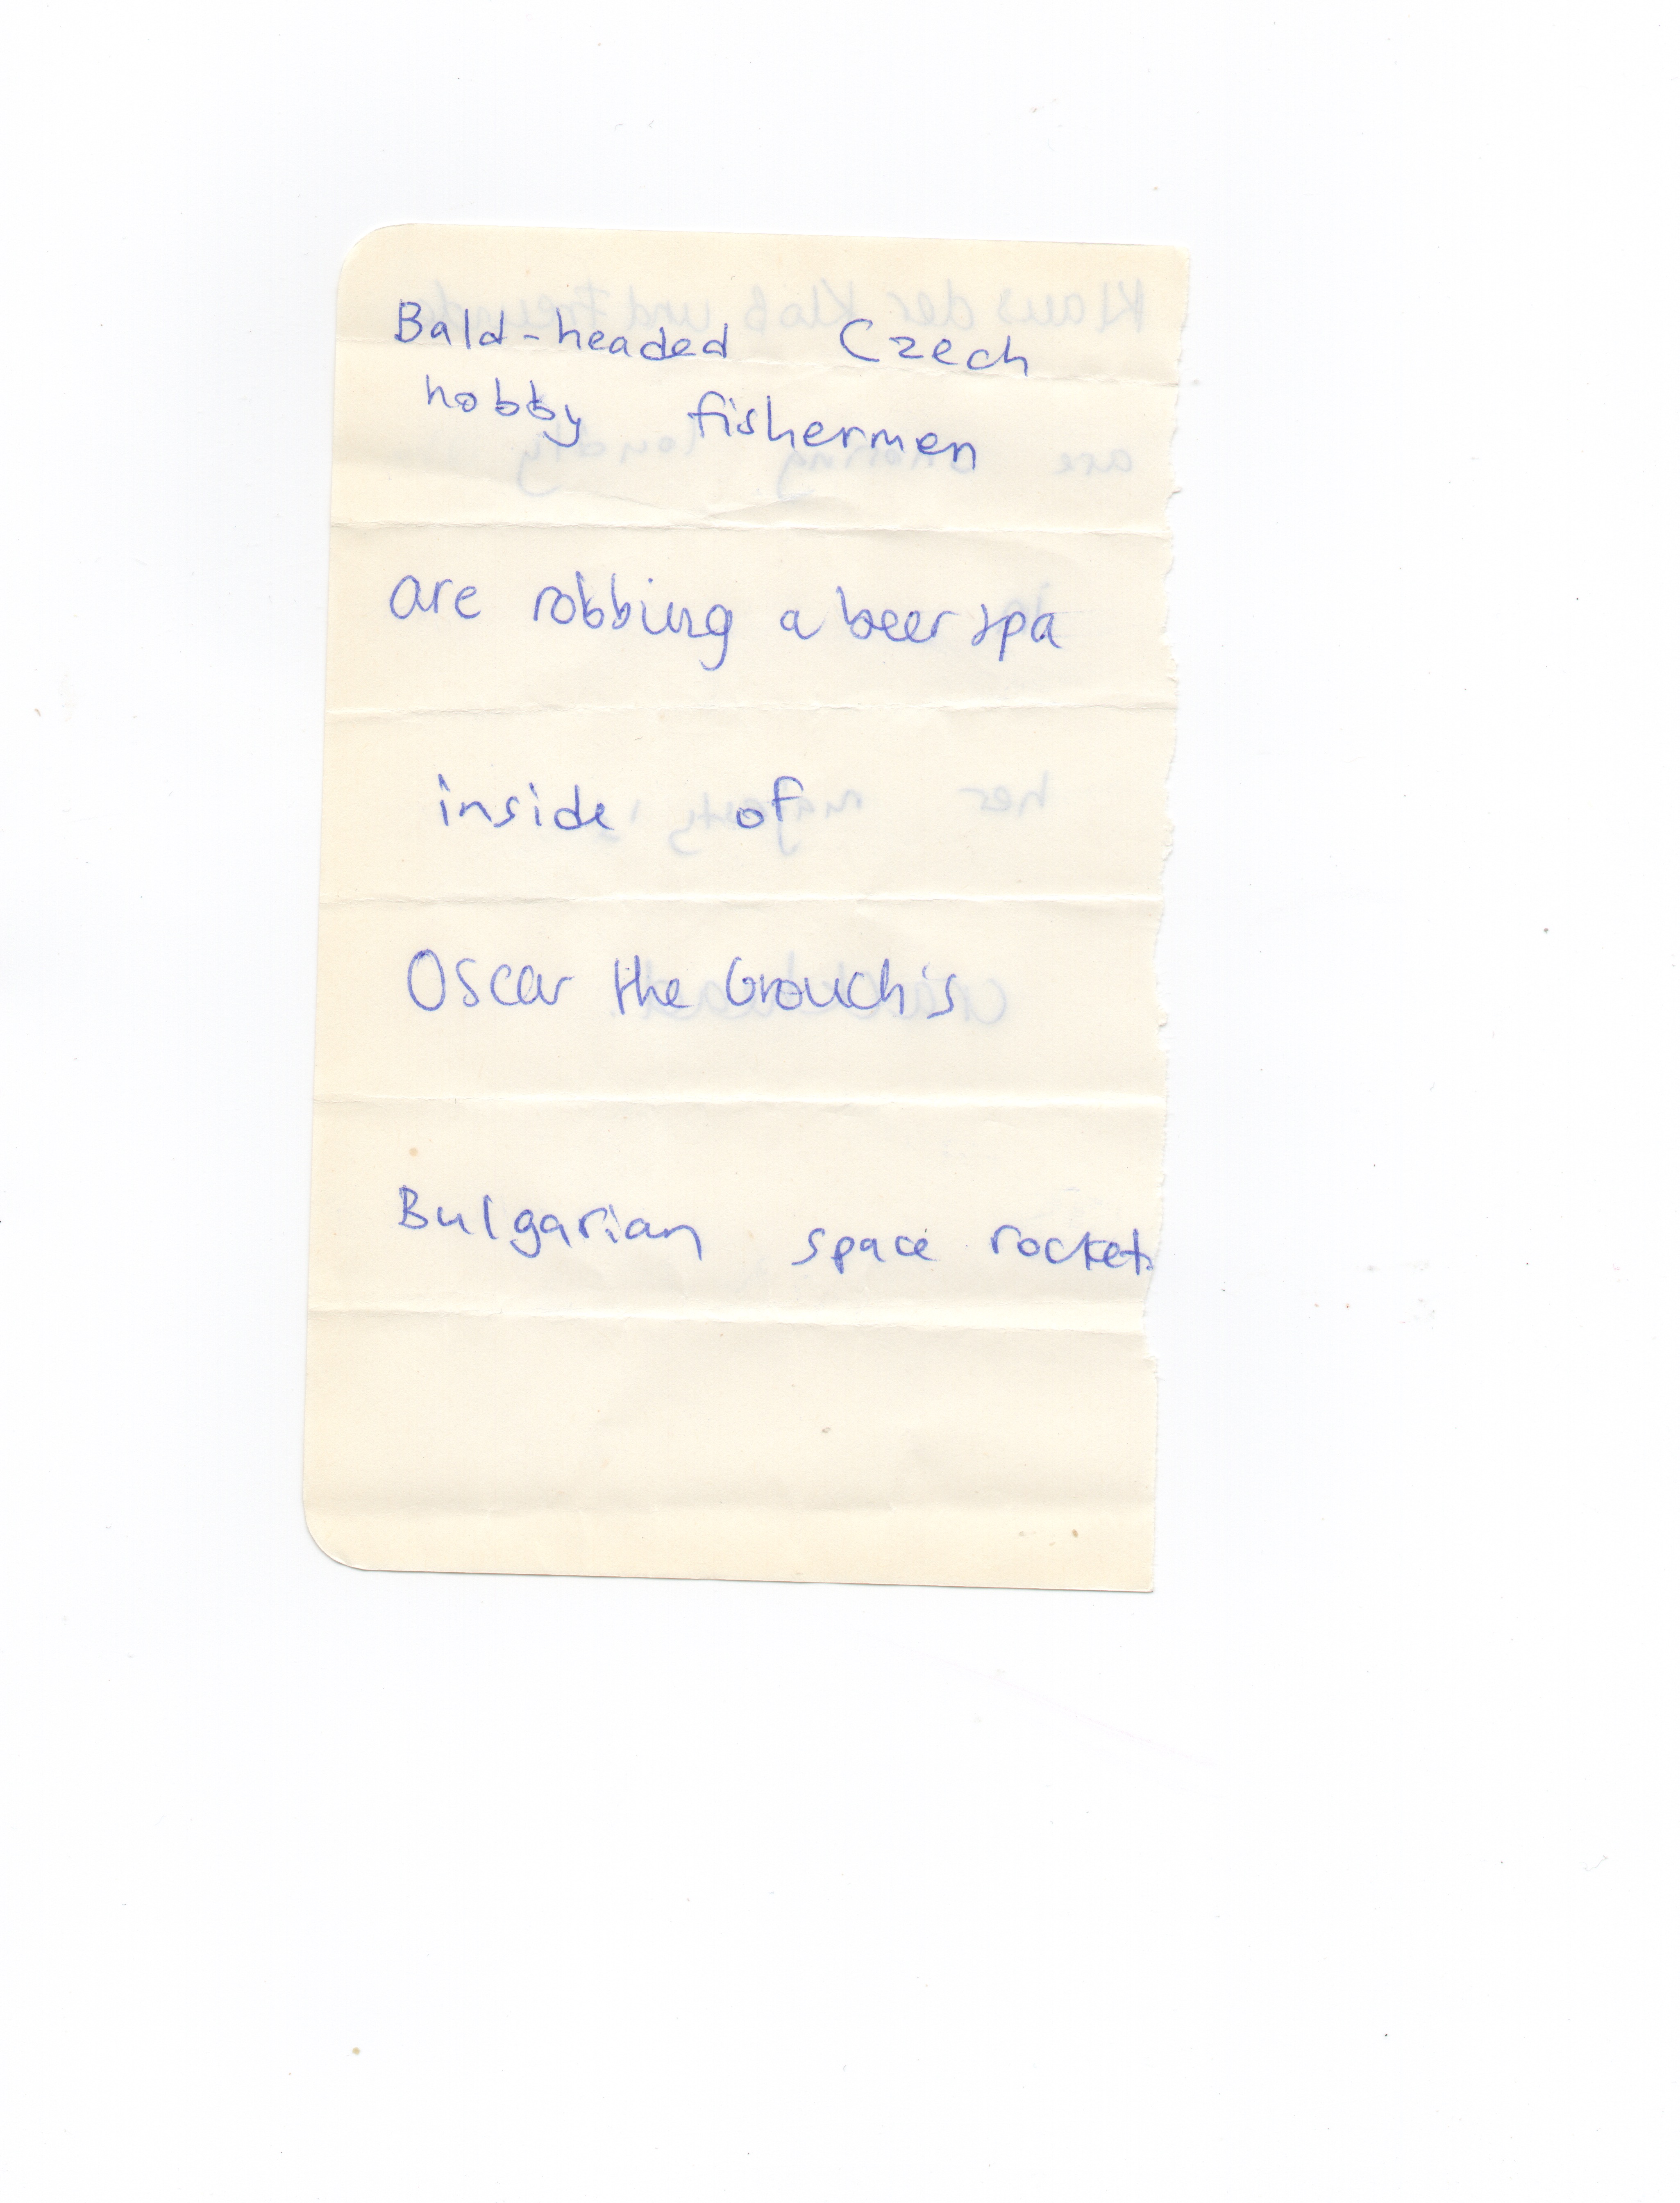 Bald-headed Czech
hobby fishermen
are robbing a beer spa
inside of
Oscar the Grouch's
Bulgarian space rocket.